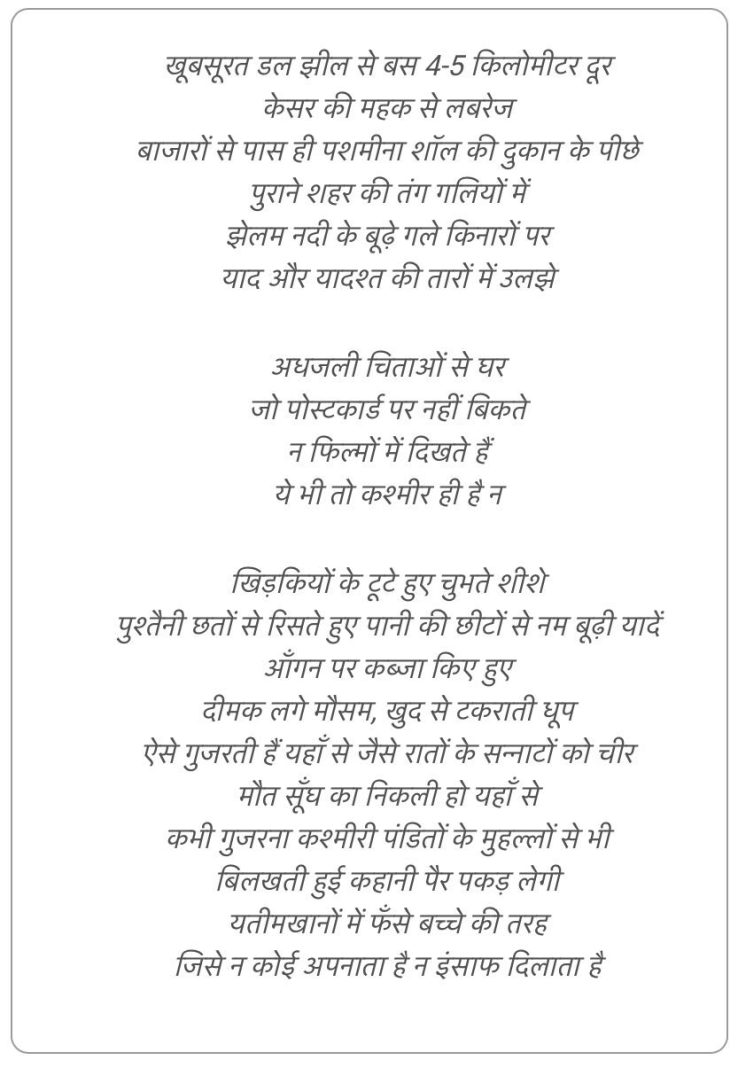 खूबसूरत डल झील से बस 4-5 किलोमीटर दूर
केसर की महक से लबरेज
बाजारों से पास ही पशमीना शॉल की दुकान के पीछे
पुराने शहर की तंग गलियों में
झेलम नदी के बूढ़े गले किनारों पर
याद और यादश्त की तारों में उलझे
अधजली चिताओं से घर
जो पोस्टकार्ड पर नहीं बिकते
न फिल्मों में दिखते हैं
ये भी तो कश्मीर ही है न
खिड़कियों के टूटे हुए चुभते शीशे
पुश्तैनी छतों से रिसते हुए पानी की छीटों से नम बूढ़ी यादें
आँगन पर कब्जा किए हुए
दीमक लगे मौसम, खुद से टकराती धूप
ऐसे गुजरती हैं यहाँ से जैसे रातों के सन्नाटों को चीर
मौत सूँघ का निकली हो यहाँ से
कभी गुजरना कश्मीरी पंडितों के मुहल्लों से भी
बिलखती हुई कहानी पैर पकड़ लेगी
यतीमखानों में फँसे बच्चे की तरह
जिसे न कोई अपनाता है न इंसाफ दिलाता है